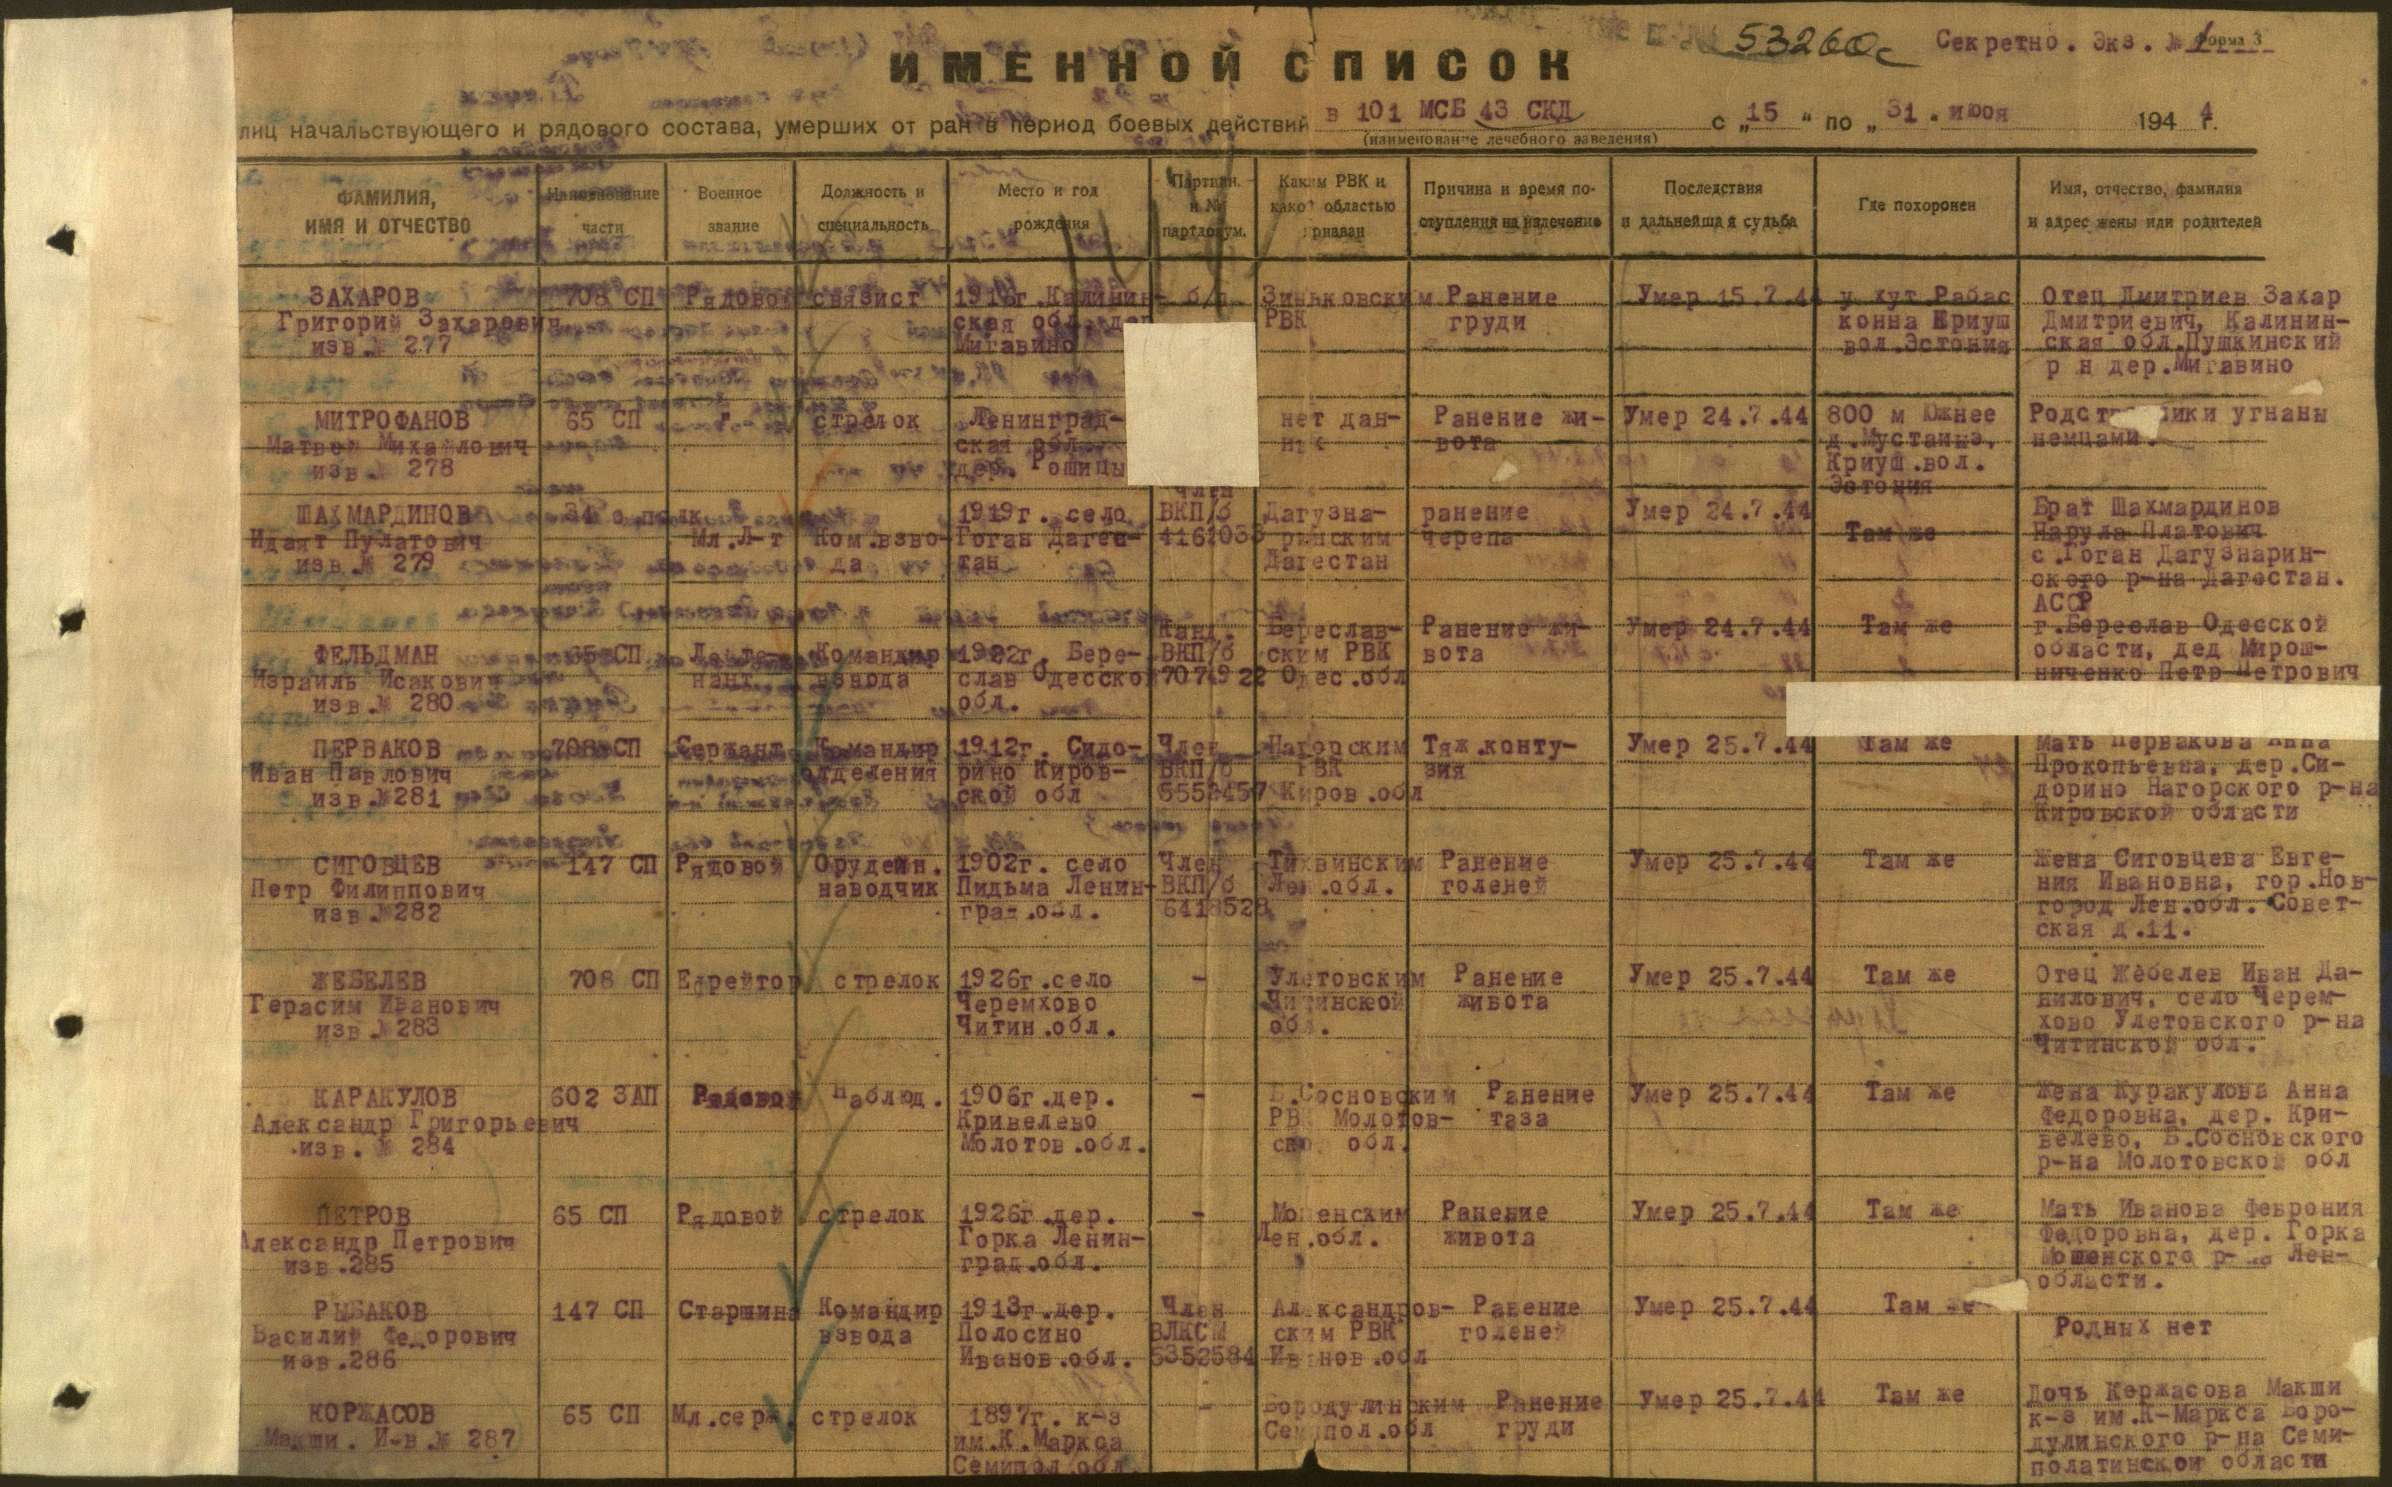 53260с Секретно. Экз. № 1 Форма 3
ИМЕННОЙ СПИСОК
лиц начальствующего и рядового состава, умерших от ран в период боевых действий в 101 МСБ 43 СКД с „15 " по „31 " июля 1944 г.
(наименование лечебного заведения)
ФАМИЛИЯ, ИМЯ И ОТЧЕСТВО
Наименование части
Военное звание
Должность и специальность
Место и год рождения
Партийн. и № партдокум.
Каким РВК и какой областью призван
Причина и время поступления на излечение
Последствия и дальнейшая судьба
Где похоронен
Имя, отчество, фамилия и адрес жены или родителей
ЗАХАРОВ
Григорий Захарович
изв.№ 277
708 СП
Рядовой
связист
1918г.Калинин-
ская обл. дер
Митавино
б/п
Зиньковским
РВК
Ранение
груди
Умер 15.7.44
у хут.Рабас
конна Криуш
вол.Эстония
Отец Дмитриев Захар
Дмитриевич, Калинин-
ская обл.Пушкинский
р н дер.Митавино
МИТРОФАНОВ
Матвей Михайлович
изв.№ 278
65 СП
"
стрелок
Ленинград-
ская обл.
дер. Рошицы
нет дан-
ных
Ранение жи-
вота
Умер 24.7.44
800 м Южнее
Криуш.вол.
Эстония
угнаны
немцами.
ШАХМАРДИНОВ
Идаят Пулатович
изв.№ 279
34 с.полк
Мл.Л-т
Ком.взво-
да
1919г. село
Гоган Дагес-
тан
Член
ВКП/б
Дагузна-
ринским
Дагестан
ранение
черепа
Умер 24.7.44
Там же
Брат Шахмардинов
Нарула Платович
с.Гоган Дагузнарин-
ского р-на Дагестан.
АССР
ФЕЛЬДМАН
Израиль Исакович
изв.№ 280
65 СП
Лейте-
нант
Командир
взвода
1922г. Бере-
слав Одесской
обл.
Канд.
ВКП/б
7074922
Береслав-
ским РВК
Одес.обл
Ранение жи-
вота
Умер 24.7.44
Там же
г.Береслав Одесской
области, дед Мирош-
ниченко Петр Петрович
ПЕРВАКОВ
Иван Павлович
изв.№281
708 СП
Сержант
Командир
отделения
1912г. Сидо-
рино Киров-
ской обл
Член
ВКП/б
Нагорским
РВК
Киров.обл
Тяж.конту-
зия
Умер 25.7.44
Там же
Мать Первакова Анна
Прокопьевна, дер.Си-
дорино Нагорского р-на
Кировской области
СИГОВЦЕВ
Петр Филиппович
изв.№282
147 СП
Рядовой
Орудейн.
наводчик
1902г. село
Пидьма Ленин-
град.обл.
Член
ВКП/б
6418528
Тихвинским
Лен.обл.
Ранение
голеней
Умер 25.7.44
Там же
Жена Сиговцева Евге-
ния Ивановна, гор.Нов-
город Лен.обл. Совет-
ская д.11.
ЖЕБЕЛЕВ
Герасим Иванович
изв.№283
708 СП
Ефрейтор
стрелок
1926г.село
Черемхово
Читин.обл.
-
Улетовским
Читинской
обл.
Ранение
живота
Умер 25.7.44
Там же
Отец Жебелев Иван Да-
нилович, село Черем-
хово Улетовского р-на
Читинской обл.
КАРАКУЛОВ
Александр Григорьевич
изв. № 284
602 ЗАП
Рядовой
Наблюд.
1906г.дер.
Кривелево
Молотов.обл.
-
Б.Сосновским
РВК Молотов-
ской обл.
Ранение
таза
Умер 25.7.44
Там же
Жена Куракулова Анна
Федоровна, дер. Кри-
велево, Б.Сосновского
р-на Молотовской обл
ПЕТРОВ
Александр Петрович
изв.285
65 СП
Рядовой
стрелок
1926г.дер.
Горка Ленин-
град.обл.
-
Мошенским
Лен.обл.
Ранение
живота
Умер 25.7.44
Там же
Мать Иванова Феврония
Федоровна, дер. Горка
Мошенского р-на Лен-
области.
РЫБАКОВ
Василий Федорович
изв.286
147 СП
Старшина
Командир
взвода
1913г.дер.
Полосино
Иванов.обл.
Член
ВЛКСМ
5352584
Александров-
ским РВК
Иванов.обл
Ранение
голеней
Умер 25.7.44
Там же
Родных нет
КОРЖАСОВ
Макши. И-в.№ 287
65 СП
Мл.серж.
стрелок
1897г. к-з
им.К.Маркса
Семипол.обл.
-
Бородулинским
Семипол.обл
Ранение
груди
Умер 25.7.44
Там же
Дочь Коржасова Макши
к-з им.К-Маркса Боро-
дулинского р-на Семи-
полатинской области